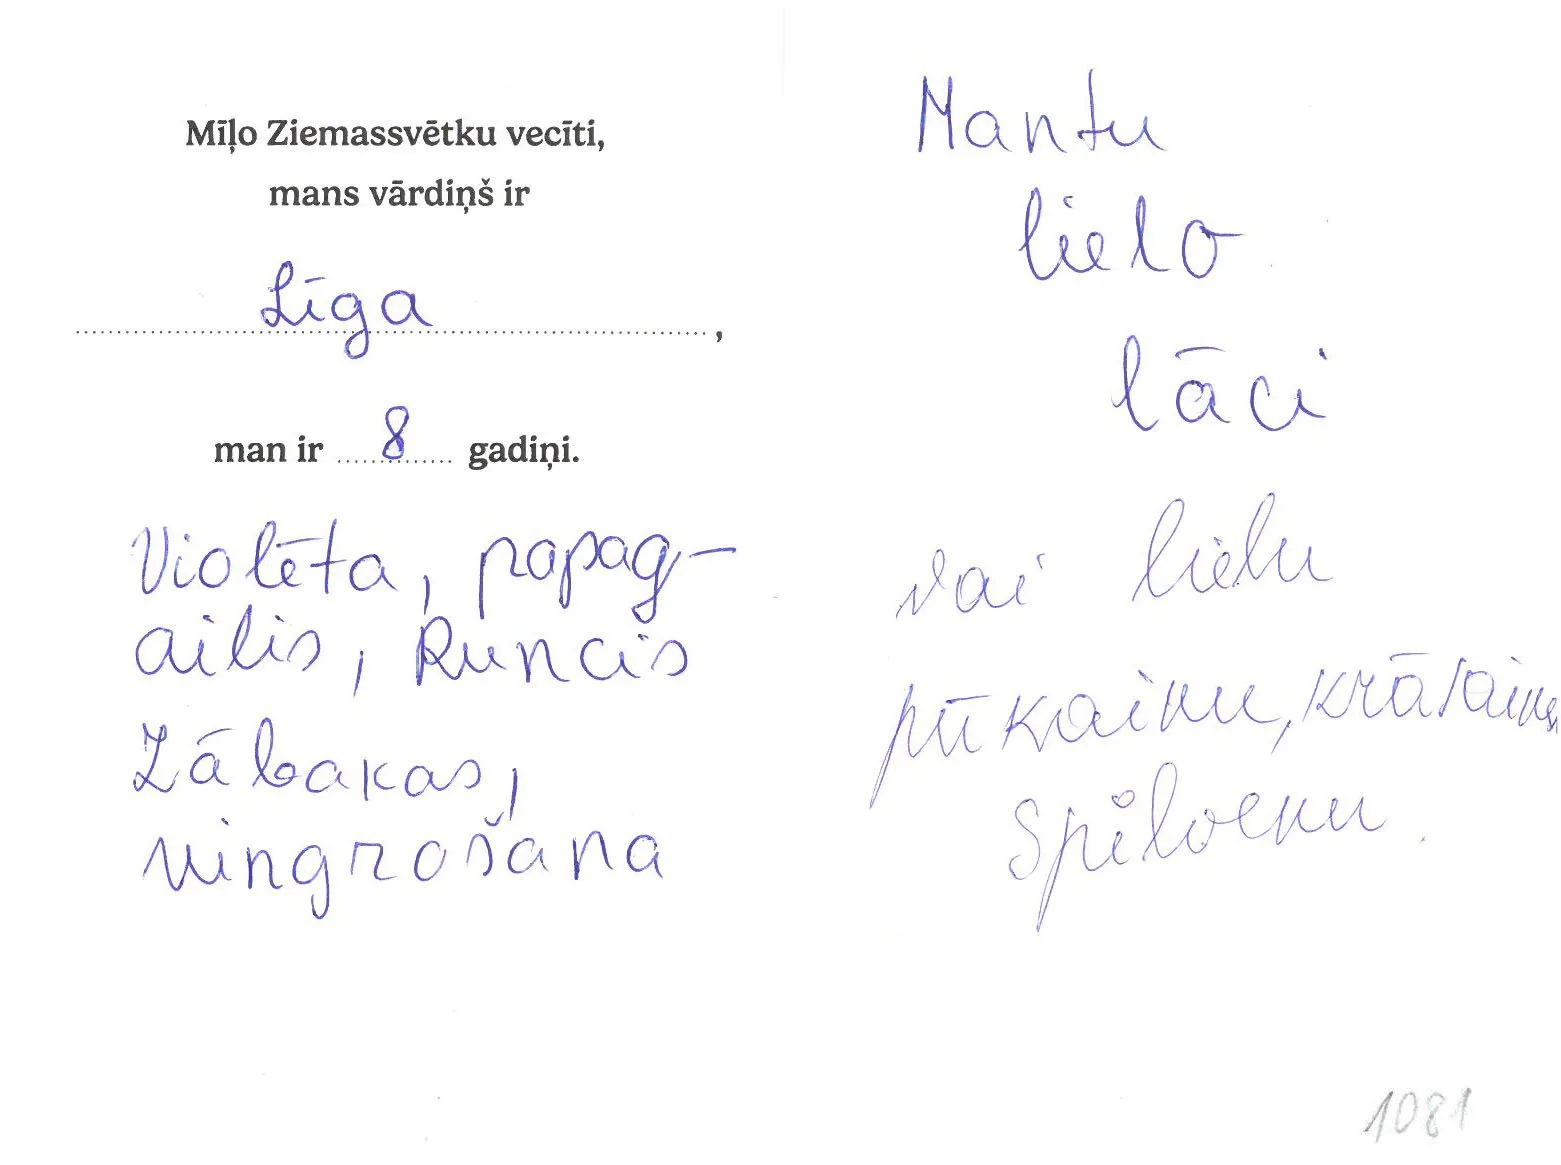 Mīļo Ziemassvētku vecīti,
mans vārdiņš ir
Līga,
man ir 8 gadiņi.
Violēta, papag-
ailis, Runcis
Zābakas,
vingrošana
Mantu
lielo
lāci
vai lielu
pūkainu, krāsainu
Spilvenu.
1081